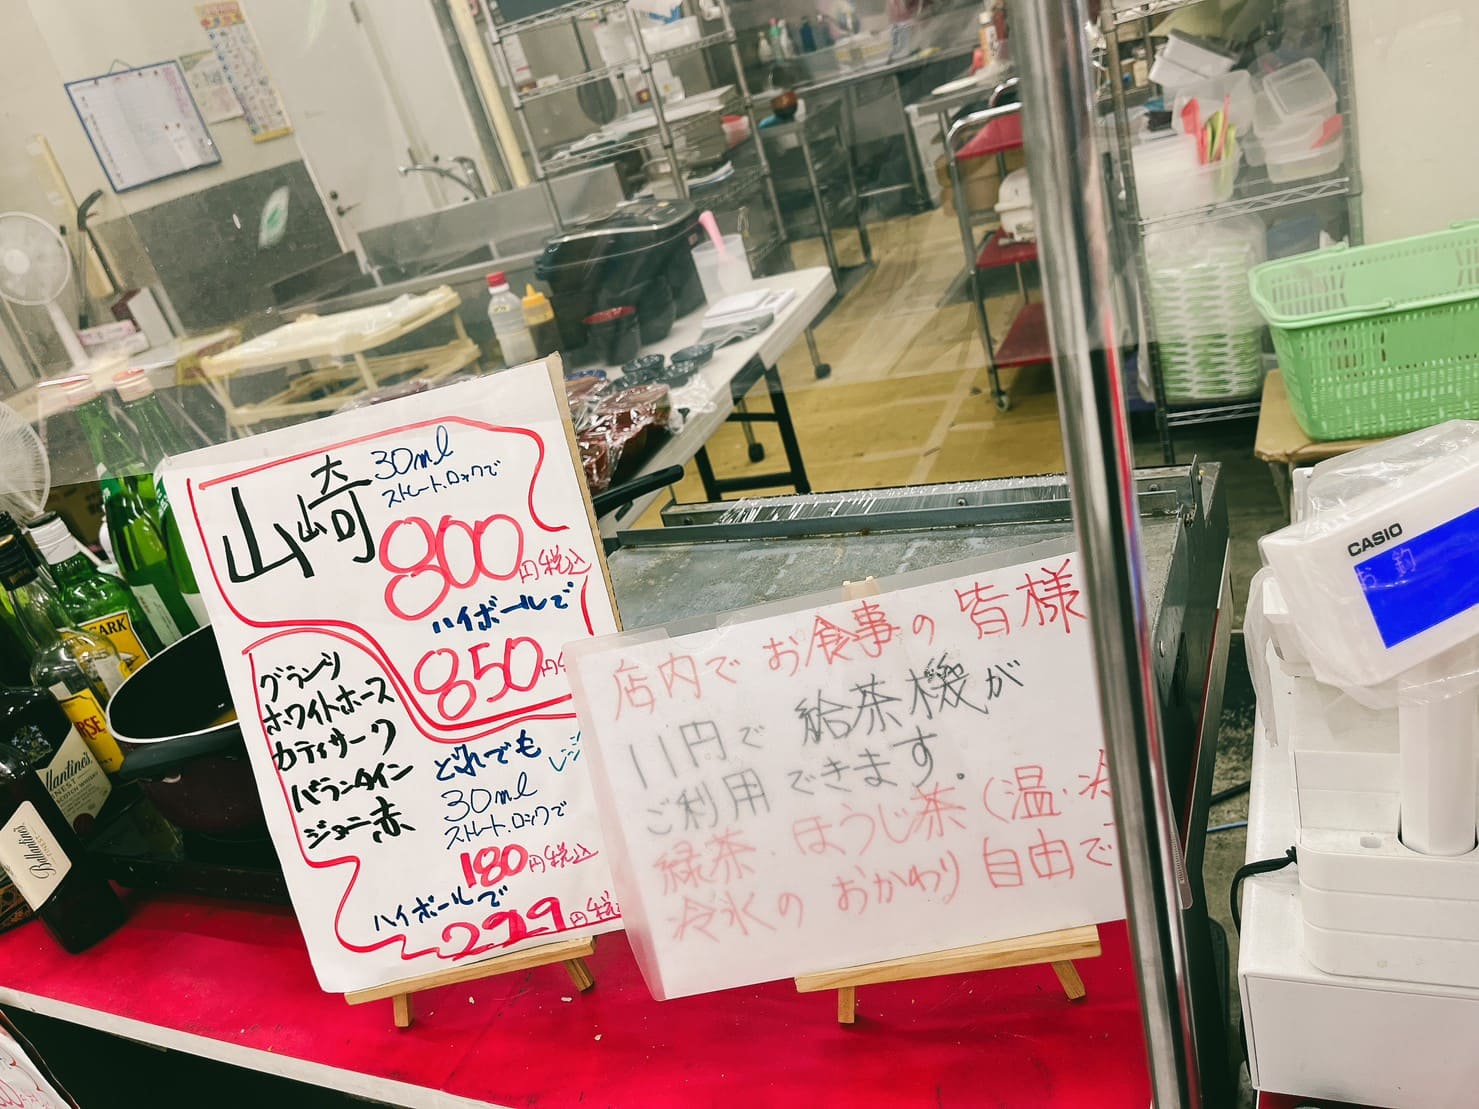 山崎
30ml
ストレート.ロックで
800円税込
ハイボールで
850円
グランツ
ホワイトホース
カティサーク
バランタイン
ジョニ赤
どれでも
30ml
ストレート.ロックで
180円税込
ハイボールで
229円税
店内でお食事の皆様
11円で給茶機が
ご利用できます。
緑茶.ほうじ茶(温.冷
冷水のおかわり自由で
CASIO
Ballantine's
FINEST
Ballantine's